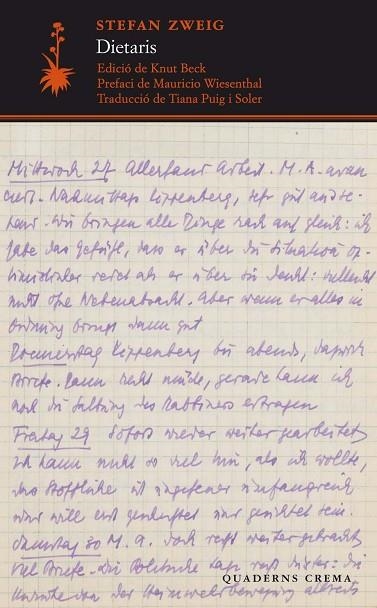 STEFAN ZWEIG
Dietaris
Edició de Knut Beck
Prefaci de Mauricio Wiesenthal
Traducció de Tiana Puig i Soler
Mittwoch 27 Allerhand Arbeit. M. A. avan
ciert. Nachmittags Kippenberg, sehr gut
Wir bringen alle Dinge rasch auf gleich: ich
habe das Gefühl, dass er über die Situation op-
timistischer redet als er über sie denkt: vielleicht
nicht ohne Nebenabsicht. Aber wenn er alles in
Ordnung bringt dann gut
Donnerstag Kippenberg bis abends,
Briefe. Dann recht müde, gerade kann ich
noch die des Rabbiners ertragen
Freitag 29 Sofort wieder weiter gearbeitet
Ich kann nicht so viel tun, als ich wollte,
das Stoffliche ist ungeheuer umfangreich
und will erst und gesichtet sein.
Samstag 30 M. A. doch recht weiter gebracht
Viel Briefe. Die Politische Lage recht düster: die
der Heimwehrbewegung
QUADERNS CREMA